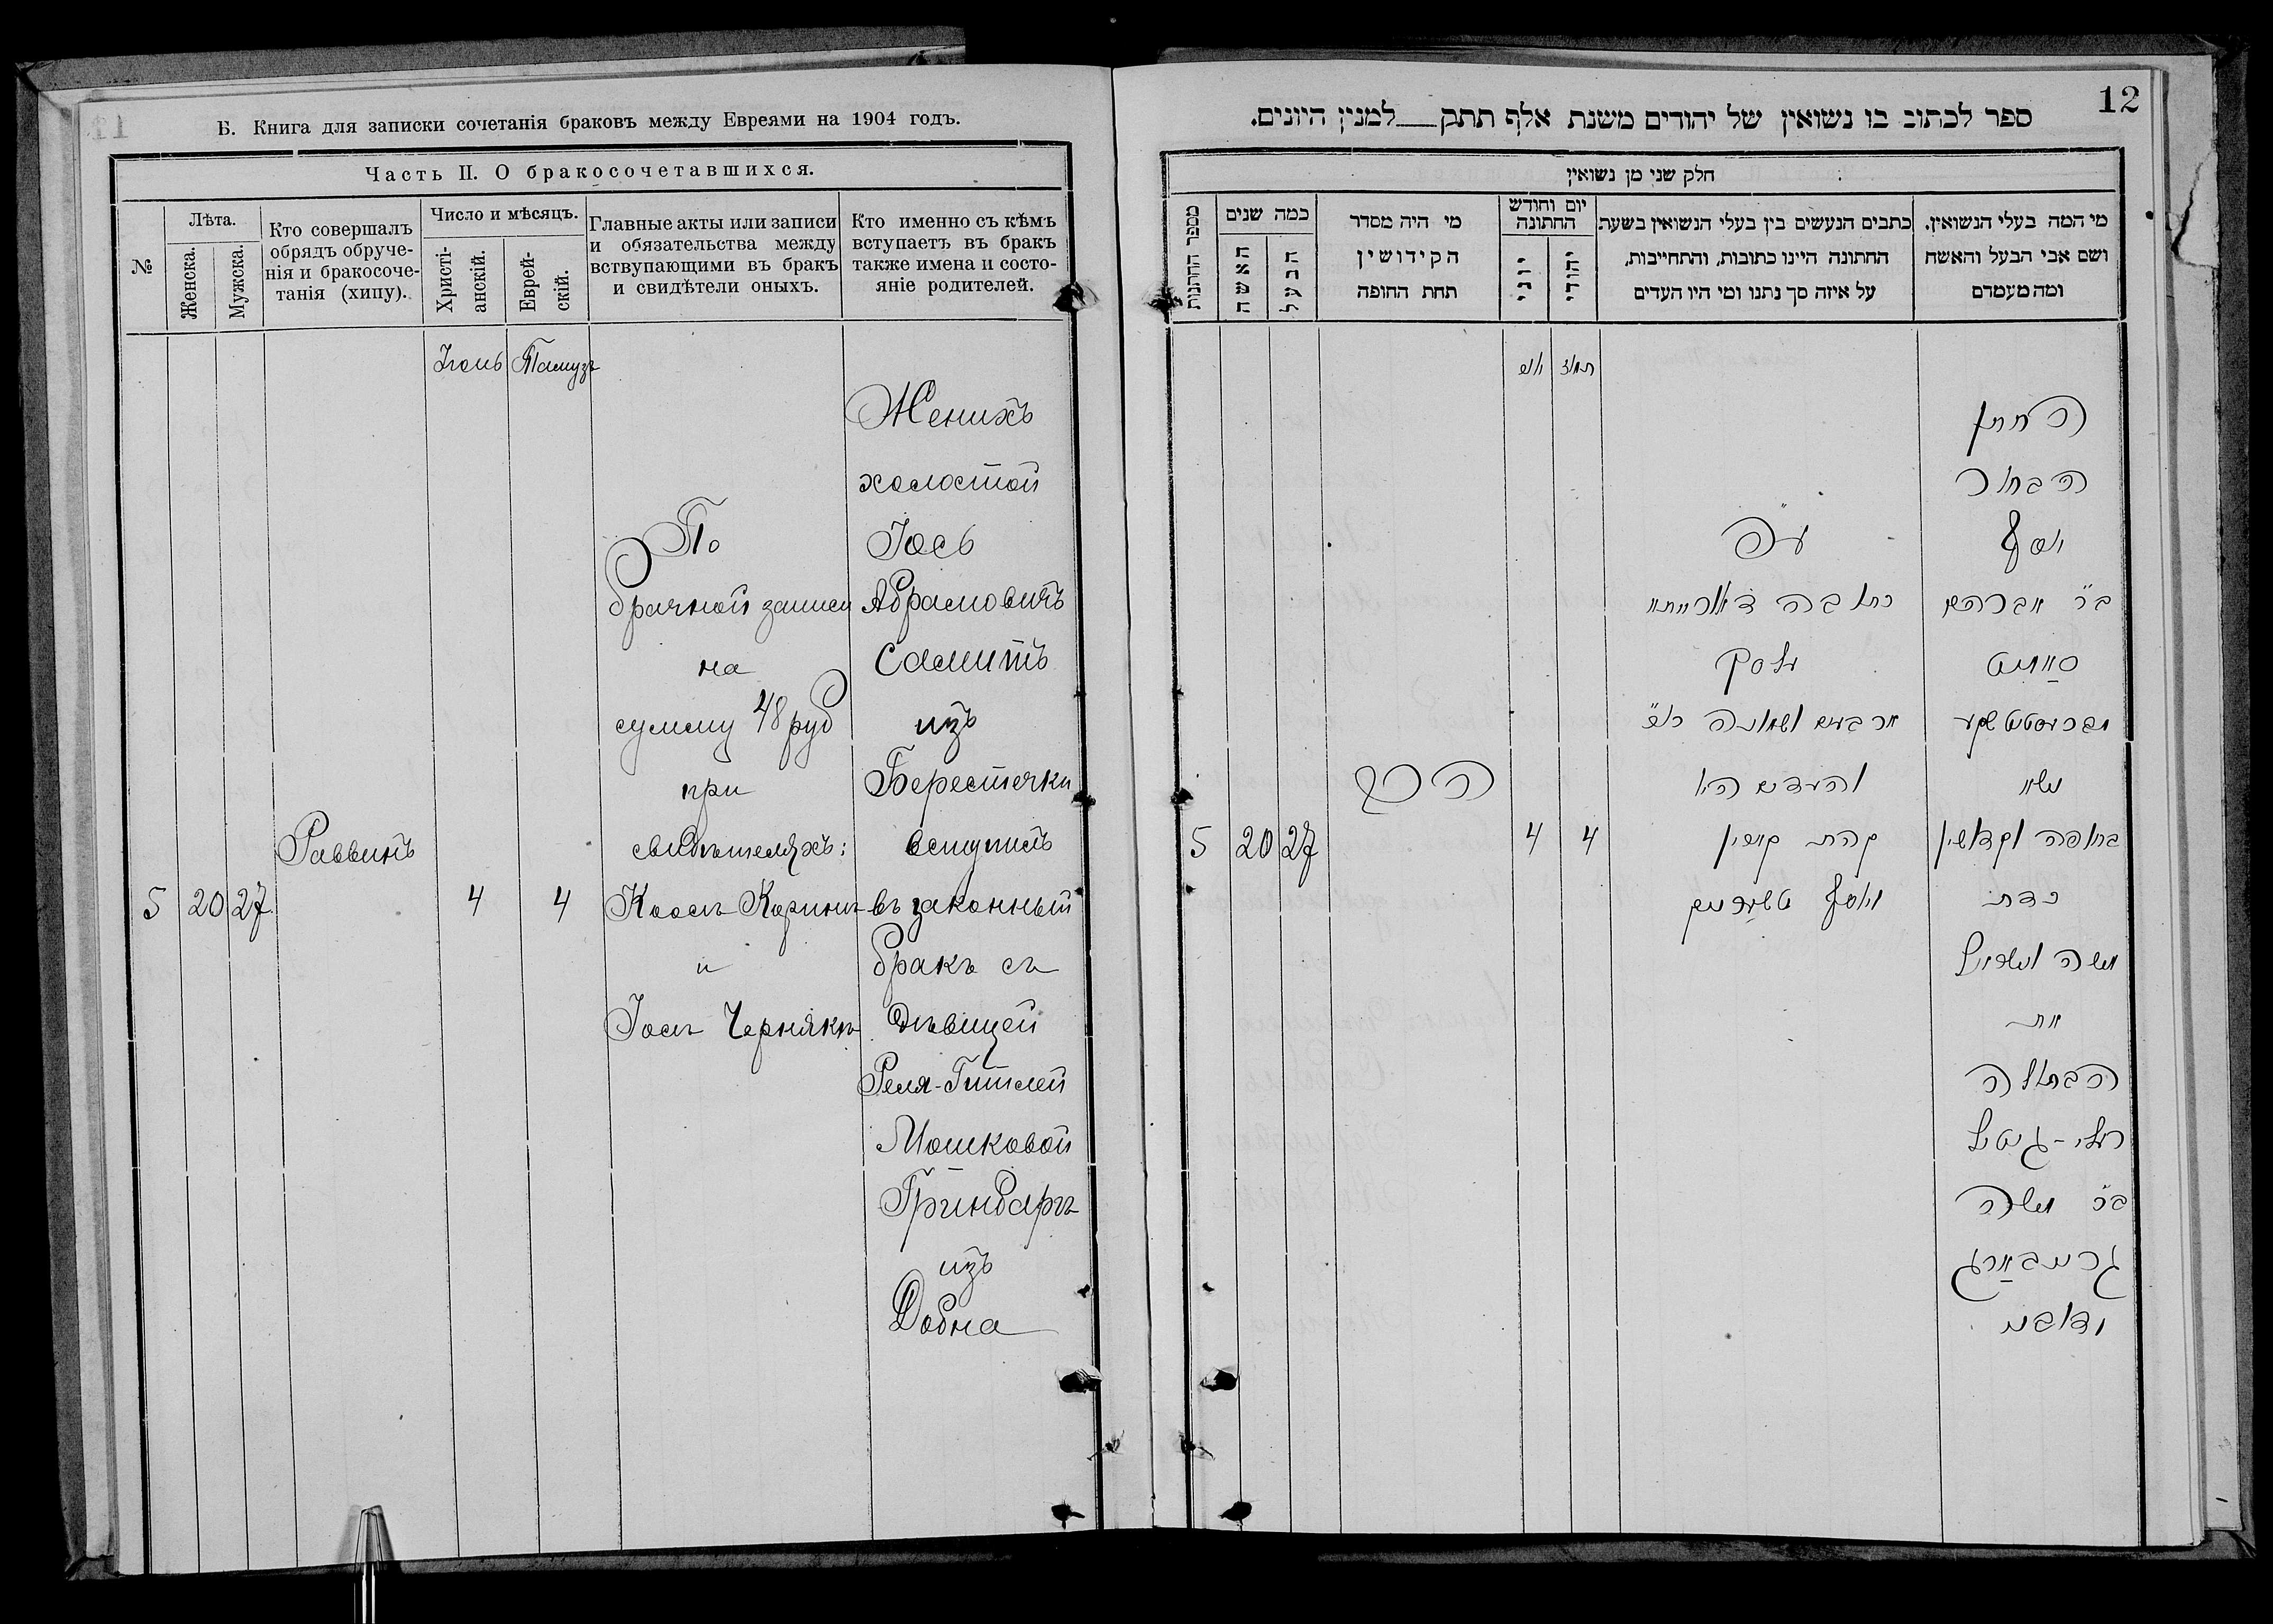 Б. Книга для записки сочетанія браковъ между Евреями на 1904 годъ.
Часть II. О бракосочетавшихся.
№
Лѣта.
Женска.
Мужска.
Кто совершалъ
обрядъ обруче-
нія и бракосоче-
танія (хипу).
Число и мѣсяцъ.
Христі-
анскій.
Еврей-
скій.
Главные акты или записи
и обязательства между
вствупающими въ бракъ
и свидѣтели оныхъ.
Кто именно съ кѣмъ
вступаетъ въ бракъ
также имена и состо-
яніе родителей.
Тамузъ
5
20
27
Раввинъ
4
4
По
брачной записи
на
сумму 48 руб
при
свидѣтеляхъ:
и
Іось Чернякъ
Женихъ
холостой
Іось
Абрамовичъ
изъ
Берестечки
вступилъ
въ законный
бракъ съ
дѣвицей
Мошковой
изъ
Дубна
12
ספר לכתוב בו נשואין של יהודים משנת אלף תתק למנין היונים.
חלק שני מן נשואין
מספר החתונות
כמה שנים
האשה
הבעל
מי היה מסדר
הקידושין
תחת החופה
יום וחודש
החתונה
יוני
יהודי
כתבים הנעשים בין בעלי הנשואין בשעת
החתונה היינו כתובות, והתחייבות,
על איזה סך נתנו ומי היו העדים
מי המה בעלי הנשואין,
ושם אבי הבעל והאשה
ומה מעמדם
תמוז
5
20
27
הרב
4
4
ע״פ
כתובה דאורייתא
על סך
ארבעים ושמונה
והעדים היו
קהת
החתן
הבחור
יוסף
ב״ר אברהם
נשא
בחופה וקדושין
כדת
משה וישראל
את
הבתולה
ב״ר משה